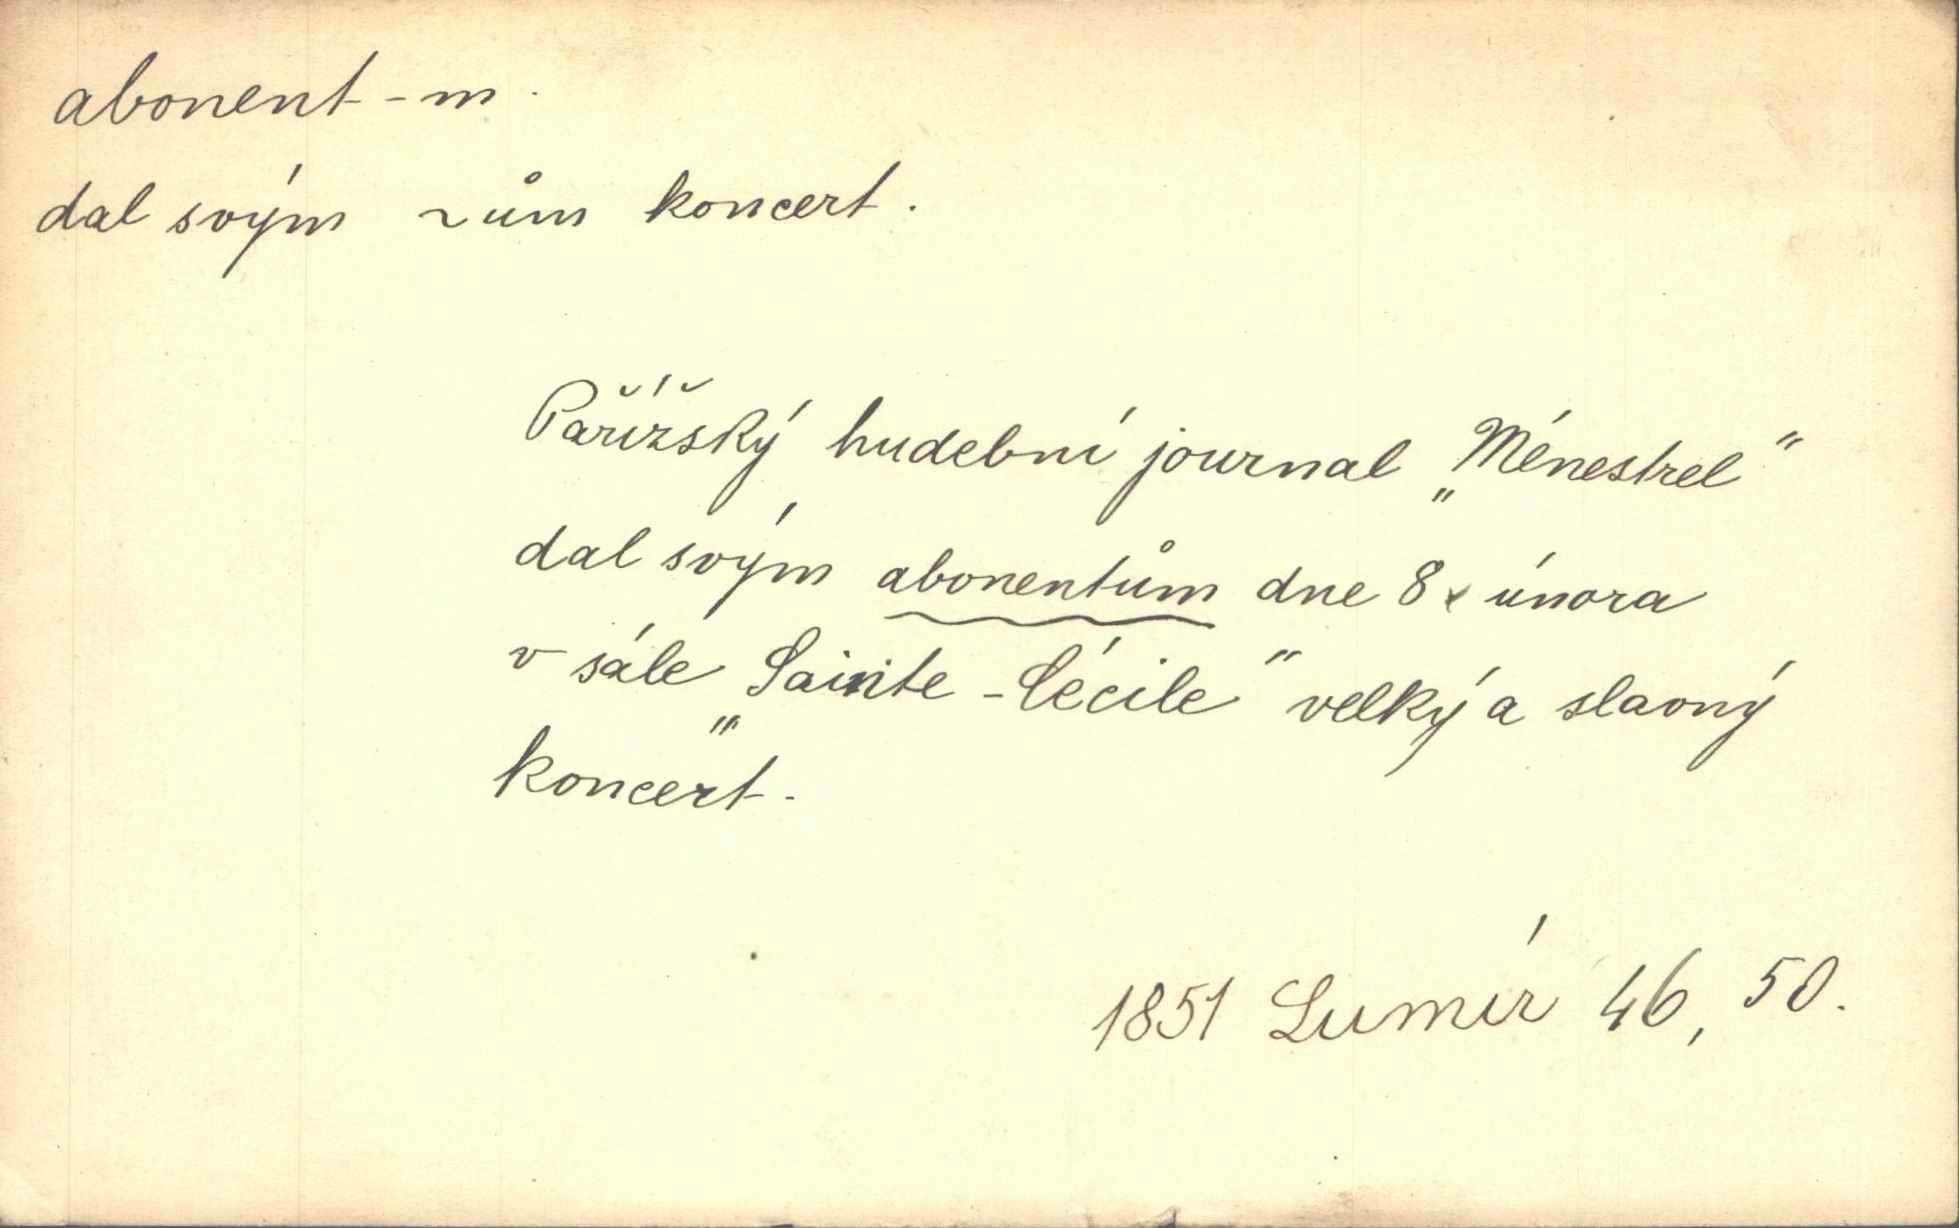 abonent - m.
dal svým ~ům koncert.
Pařížský hudební journal „Ménestrel“
dal svým abonentům dne 8. února
v sále „Sainte - Cécile“ velký a slavný
koncert.
1851 Lumír 46, 50.